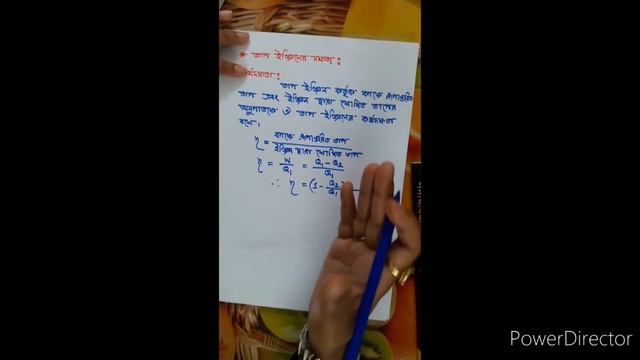 * তাপ ইঞ্জিনের দক্ষতা :
কার্যদক্ষতা :
তাপ ইঞ্জিন কর্তৃক কাজে রূপান্তরিত
তাপ এবং ইঞ্জিন দ্বারা শোষিত তাপের
অনুপাতকে ঐ তাপ ইঞ্জিনের কার্যদক্ষতা
বলে।
η = কাজে রূপান্তরিত তাপ / ইঞ্জিন দ্বারা শোষিত তাপ
η = W/Q₁ = Q₁ - Q₂/Q₁
∴ η = (1 - Q₂/Q₁
PowerDirector